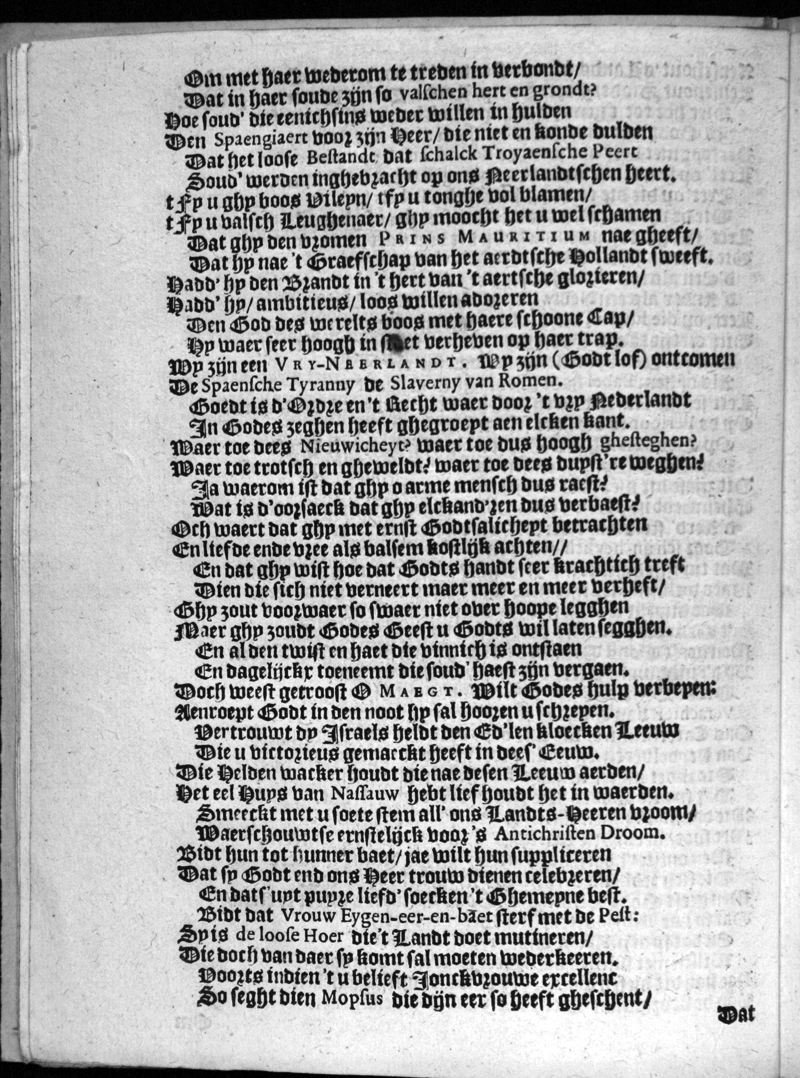 Om met haer wederom te treden in verbondt/
Dat in haer soude zijn so valschen hert en grondt?
Hoe soud' die eenichsins weder willen in hulden
Den Spaengiaert voor zijn Heer/ die niet en konde dulden
Dat het loose Bestandt dat schalck Troyaensche Peert
Soud' werden inghebracht op ons Neerlandtschen heert.
tFy u ghy boos Vileyn/ tfy u tonghe vol blamen/
tFy u valsch Leughenaer/ ghy moocht het u wel schamen
Dat ghy den vromen PRINS MAURITIUM nae gheeft/
Dat hy nae 't Graefschap van het aerdtsche Hollandt sweeft.
Hadd' hy den Brandt in 't hert van 't aertsche glorieren/
Hadd' hy/ ambitieus/ loos willen adoreren
Den God des werelts boos met haere schoone Cap/
Hy waer seer hoogh in verheven op haer trap.
Wy zijn een VRY-NEERLANDT. Wy zijn (Godt lof) ontcomen
De Spaensche Tyranny de Slaverny van Romen.
Goedt is d'Ordre en 't Recht waer door 't vry Nederlandt
In Godes zeghen heeft ghegroept aen elcken kant.
Waer toe dees Nieuwicheyt? waer toe dus hoogh ghesteghen?
Waer toe trotsch en gheweldt? waer toe dees duyst're weghen?
Ja waerom ist dat ghy o arme mensch dus raest?
Wat is d'oorsaeck dat ghy elckand'ren dus verbaest?
Och waert dat ghy met ernst Godtsalicheyt betrachten
En liefde ende vree als balsem kostlijk achten//
En dat ghy wist hoe dat Godts handt seer krachtich treft
Dien die sich niet verneert maer meer en meer verheft/
Ghy zout voorwaer so swaer niet over hoope legghen
Maer ghy zoudt Godes Geest u Godts wil laten segghen.
En al den twist en haet die vinnich is ontstaen
En dagelijckx toeneemt die soud' haest zijn vergaen.
Doch weest getroost O MAEGT. Wilt Godes hulp verbeyen:
Aenroept Godt in den noot hy sal hooren u schreyen.
Vertrouwt dy Israels heldt den Ed'len kloecken Leeuw
Die u victorieus gemaeckt heeft in dees' Eeuw.
Die Helden wacker houdt die nae desen Leeuw aerden/
Het eel Huys van Nassauw hebt lief houdt het in waerden.
Smeeckt met u soete stem all' ons Landts-Heeren vroom/
Waerschouwtse ernstelijck voor 's Antichristen Droom.
Bidt hun tot hunner baet/ jae wilt hun suppliceren
Dat sy Godt end ons Heer trouw dienen celebreren/
En dats' uyt puyre liefd' soecken 't Ghemeyne best.
Bidt dat Vrouw Eygen-eer-en-baet sterf met de Pest:
Sy is de loose Hoer die't Landt doet mutineren/
Die doch van daer sy komt sal moeten wederkeeren.
Voorts indien 't u belieft Jonckvrouwe excellent
So seght dien Mopsus die dijn eer so heeft gheschent/
Dat